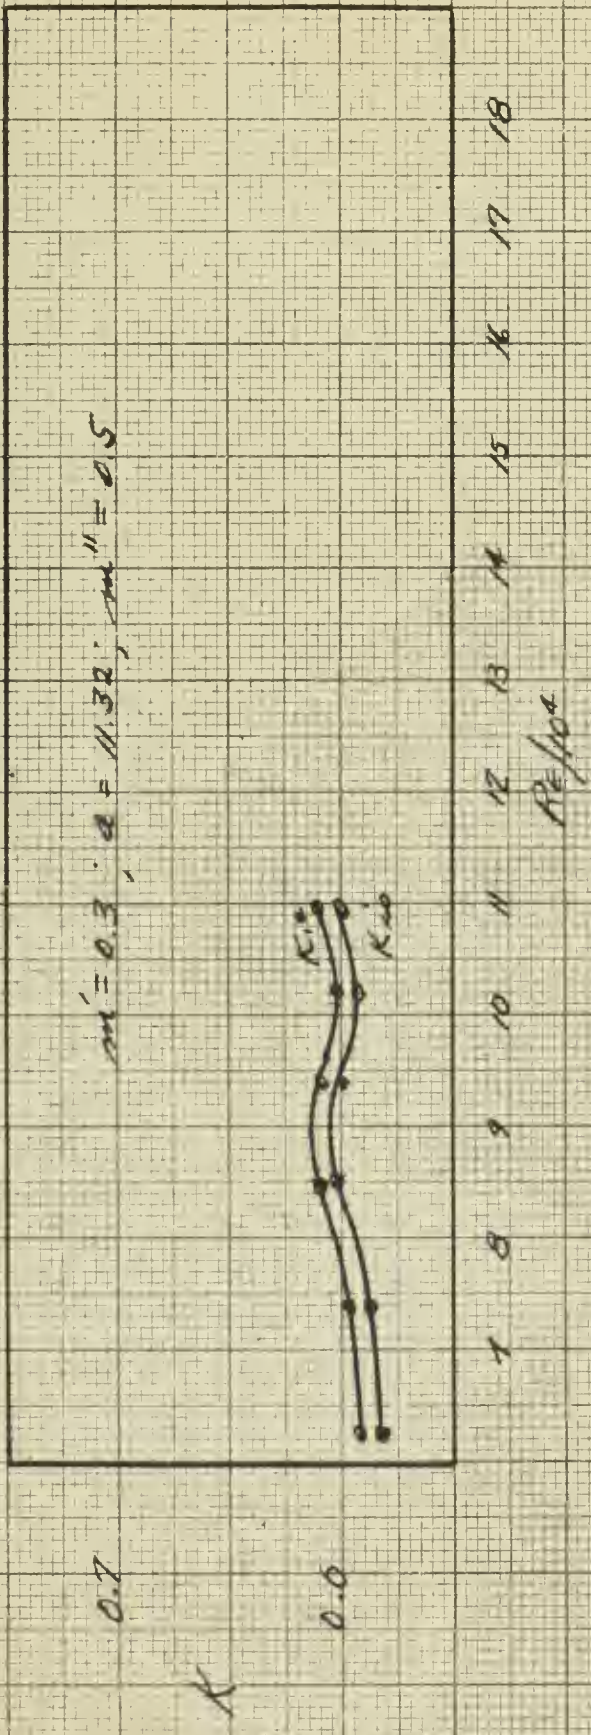 m' = 0.3 ; a = 11.32 ; m" = 0.5
0.7
K
0.6
K
K
7 8 9 10 11 12 13 14 15 16 17 18
Re/10⁴